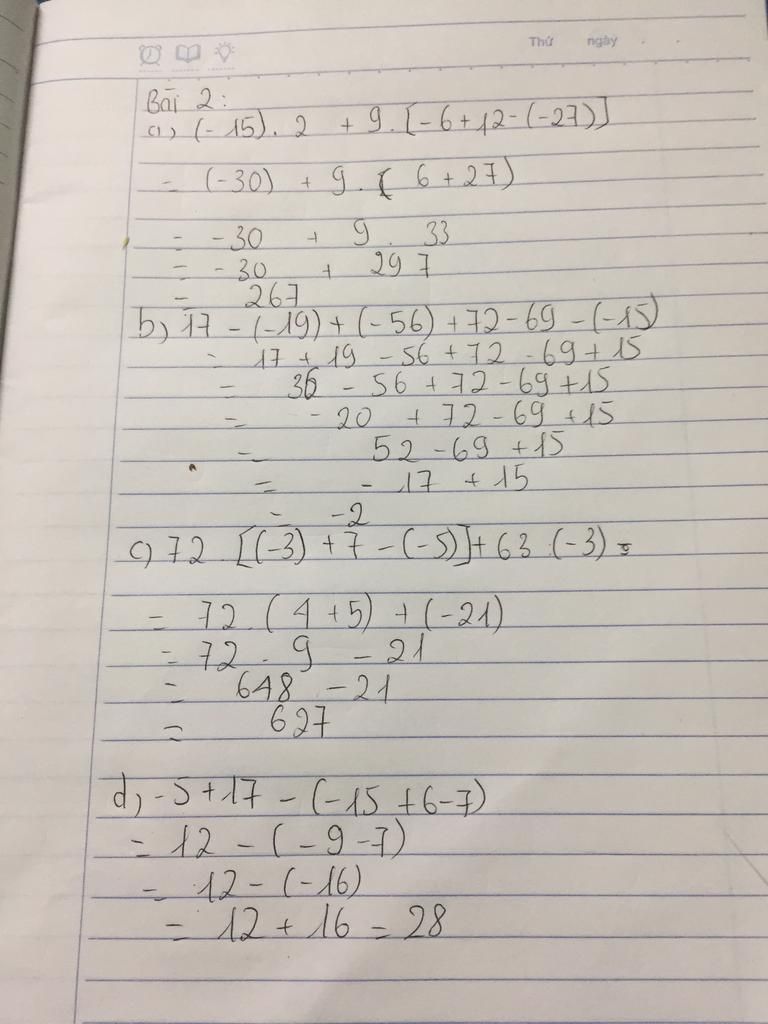 Thứ ngày
Bài 2:
a, (-15). 2 + 9. [-6+12-(-27)]
= (-30) + 9. ( 6+27)
= -30 + 9. 33
= -30 + 297
= 267
b) 17 - (-19) + (-56) + 72 - 69 - (-15)
= 17 + 19 - 56 + 72 - 69 + 15
= 36 - 56 + 72 - 69 + 15
= -20 + 72 - 69 + 15
= 52 - 69 + 15
= - 17 + 15
= -2
c) 72 [(-3) + 7 - (-5)] + 63 . (-3) =
= 72 . (4 + 5) + (-21)
= 72 . 9 - 21
= 648 - 21
= 627
d, -5 + 17 - (-15 + 6 - 7)
= 12 - ( -9 - 7)
= 12 - (-16)
= 12 + 16 = 28